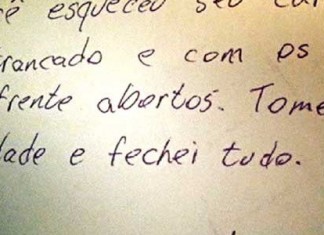 esqueceu seu
trancado e com os
frente abertos. Tome
dade e fechei tudo.